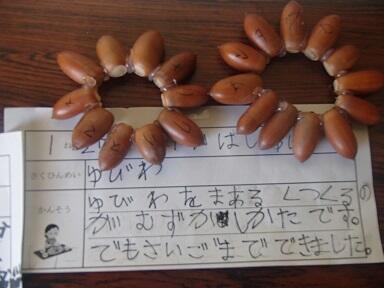 さくひんめい
ゆびわ
かんそう
ゆびわをまあるくつくる
がむずかしかたです。
でもさいごまでできました。